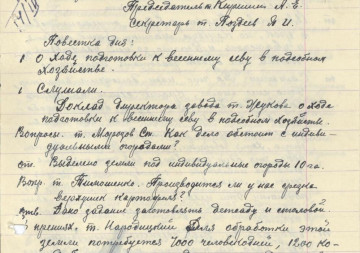 Председатель т. Киришин А. Е.
Секретарь т. Поздеев Я. И.
Повестка дня:
1 О ходе подготовки к весеннему севу в подсобном
хозяйстве.
1 Слушали.
Доклад директора завода т. Жукова о ходе
подготовки к весеннему севу в подсобном хозяйстве.
Вопросы. т. Морозов Ст. Как дело обстоит с индиви-
дуальными огородами?
отв. Выделено земли под индивидуальные огороды 10 га.
Вопр. т. Тимошенко. Производится ли у нас срезка
верхушек картофеля?
отв. Дано задание заготовлять детсаду и столовой
В прениях. т. Народицкий Для обработки этой
земли потребуется 7000 человекодней, 1200 ко-